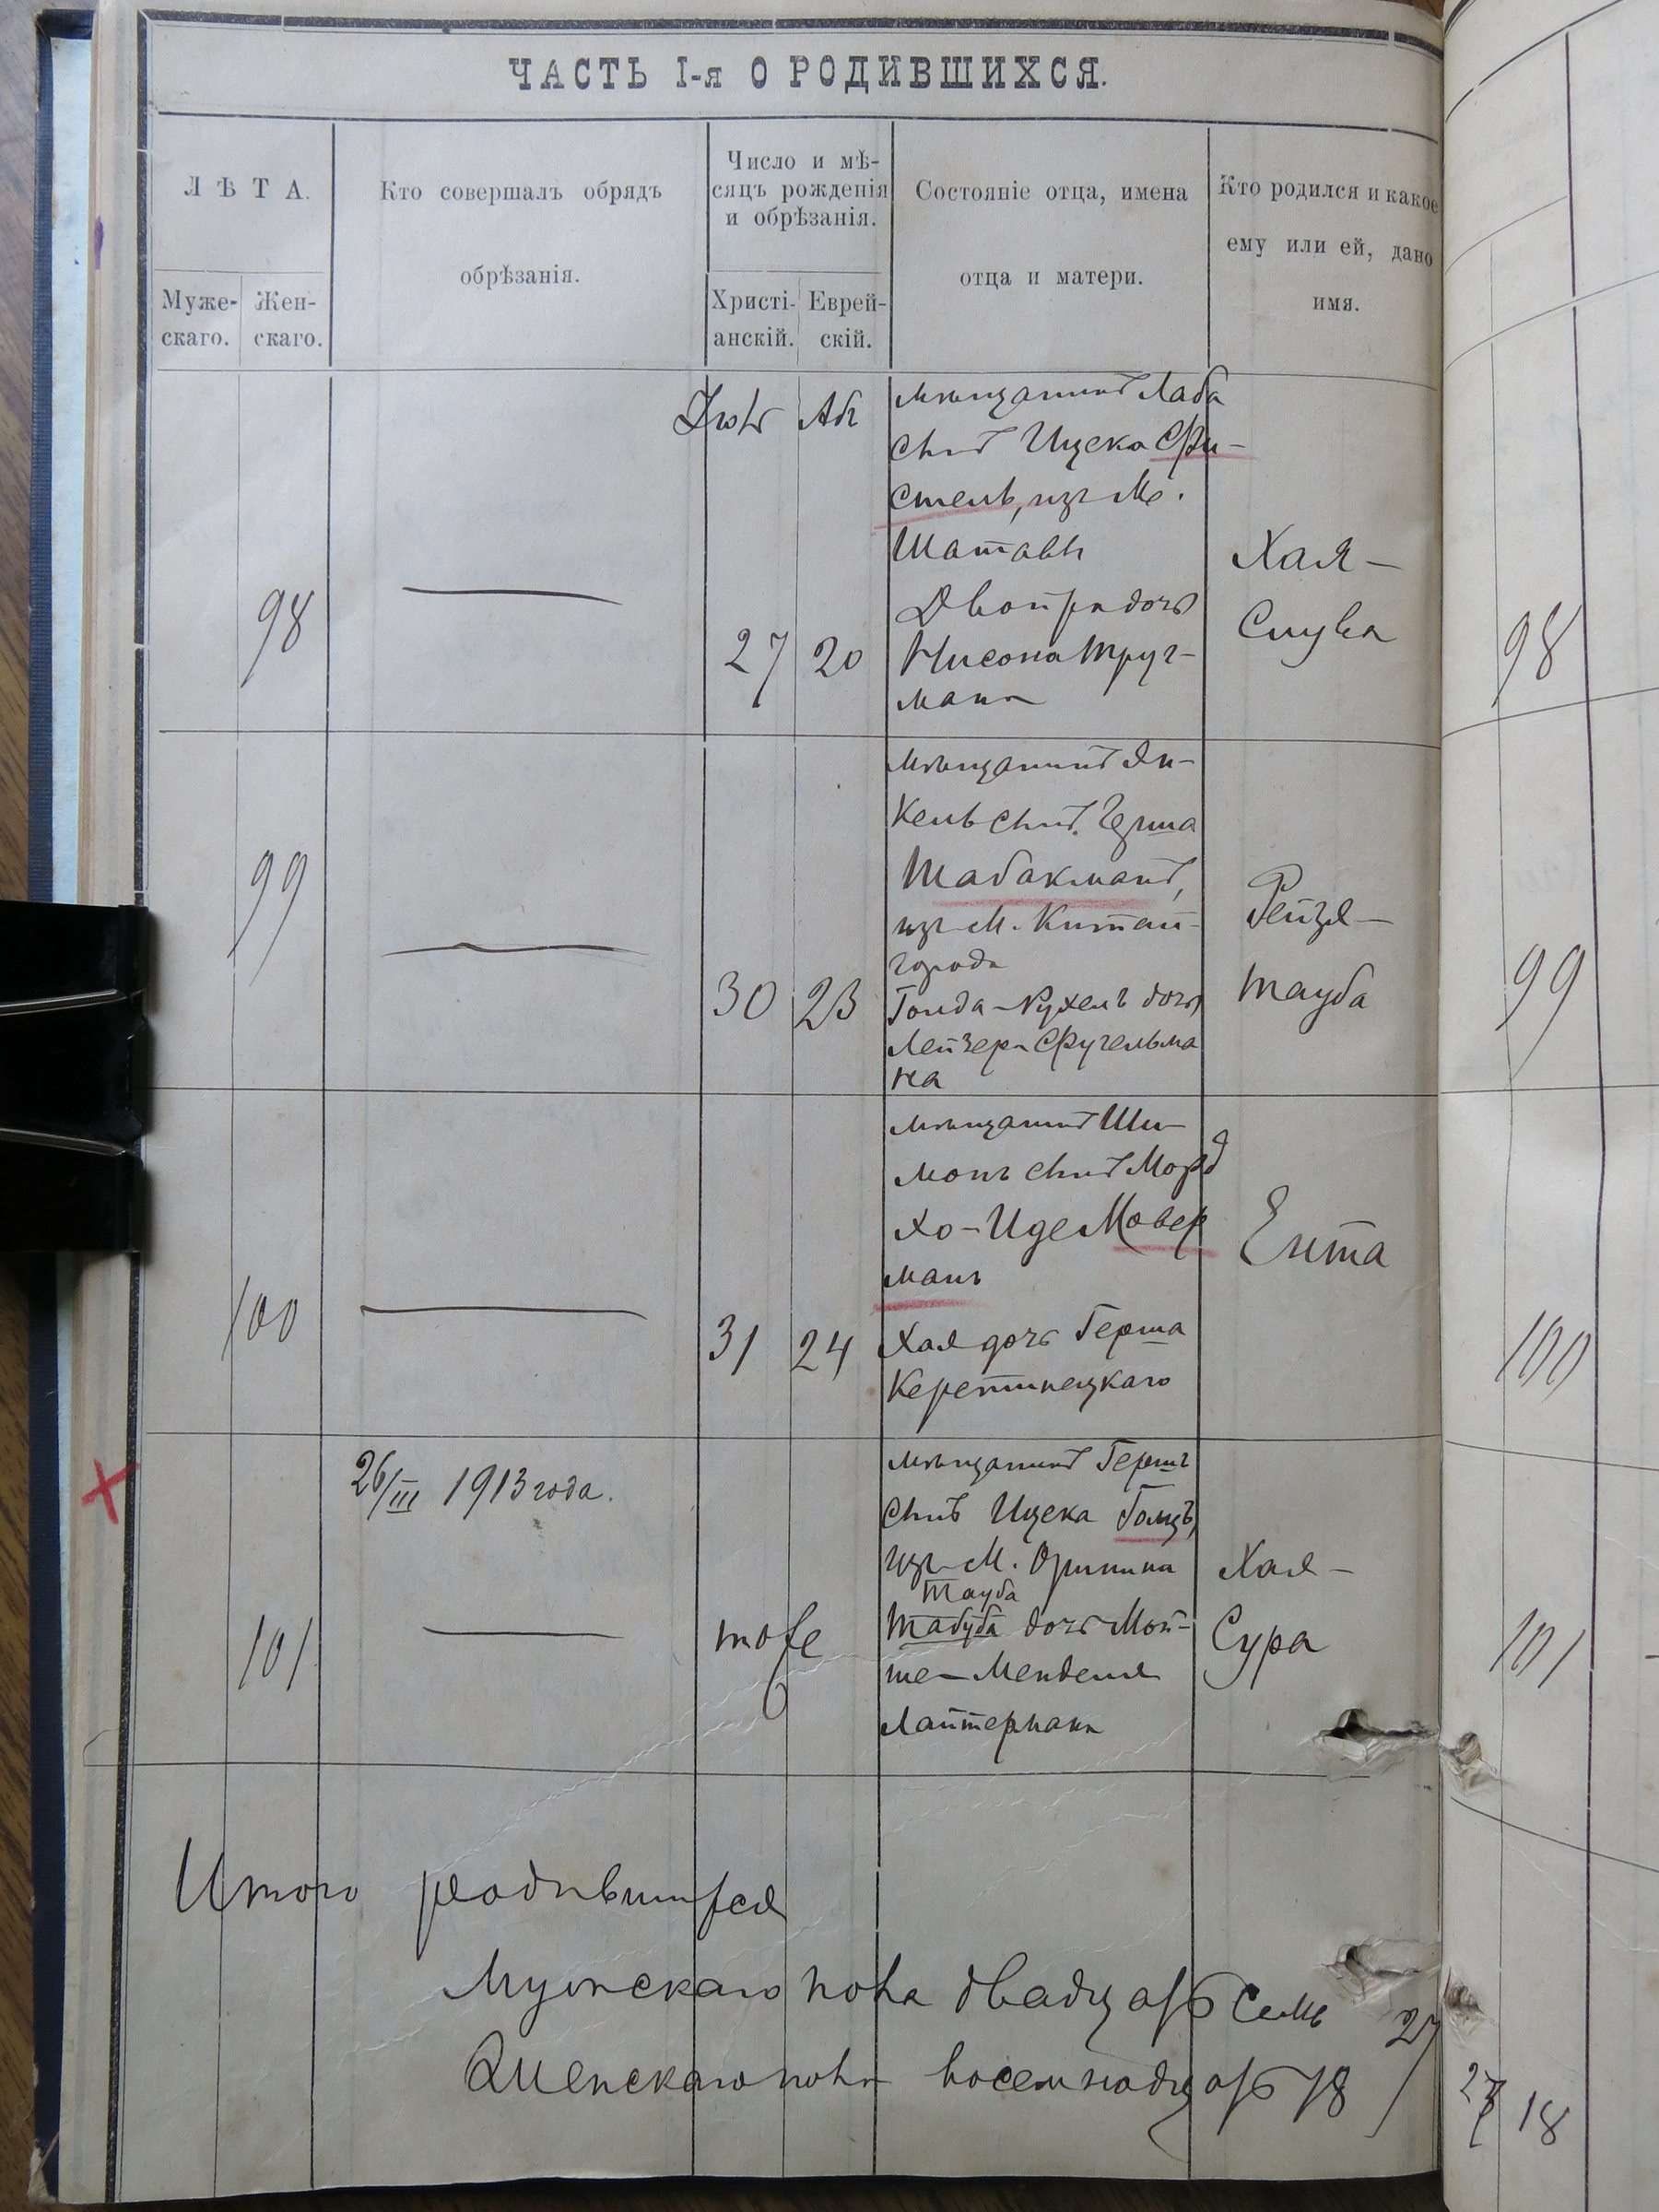 ЧАСТЬ I-я О РОДИВШИХСЯ.
ЛѢТА.
Муже-
скаго.
Жен-
скаго.
Кто совершалъ обрядъ
обрѣзанія.
Число и мѣ-
сяцъ рожденія
и обрѣзанія.
Христі-
анскій.
Еврей-
скій.
Состояніе отца, имена
отца и матери.
Кто родился и какое
ему или ей, дано
имя.
98
27
20
Аб
мѣщанинъ Лаба
сынъ Ицека Фи-
стель, изъ М.
Шатавы
Двойра дочь
Нисона Труг-
мана
Хая-
Слува
98
99
30
23
мѣщанинъ Ян-
кель сынъ Герша
Табакманъ,
изъ М. Китай-
города
Голда-Рухель дочь
Лейзера Фугельма
на
Рейзя-
Тауба
99
100
31
24
мѣщанинъ Ши-
монъ сынъ Морд
хо-Иде Мавер
манъ
Хая дочь Герша
Керетинецкаго
Ента
100
26/III 1913 года.
101
тоже
мѣщанинъ Гершъ
сынъ Ицека Голцъ,
изъ М. Оринина
Тауба
Табуба дочь Мой-
ше-Менделя
Лайтермана
Хая-
Сура
101
Итого родившихся
Мужскаго пола двадцать семь 27
Женскаго пола восемнадцать 18
27 18